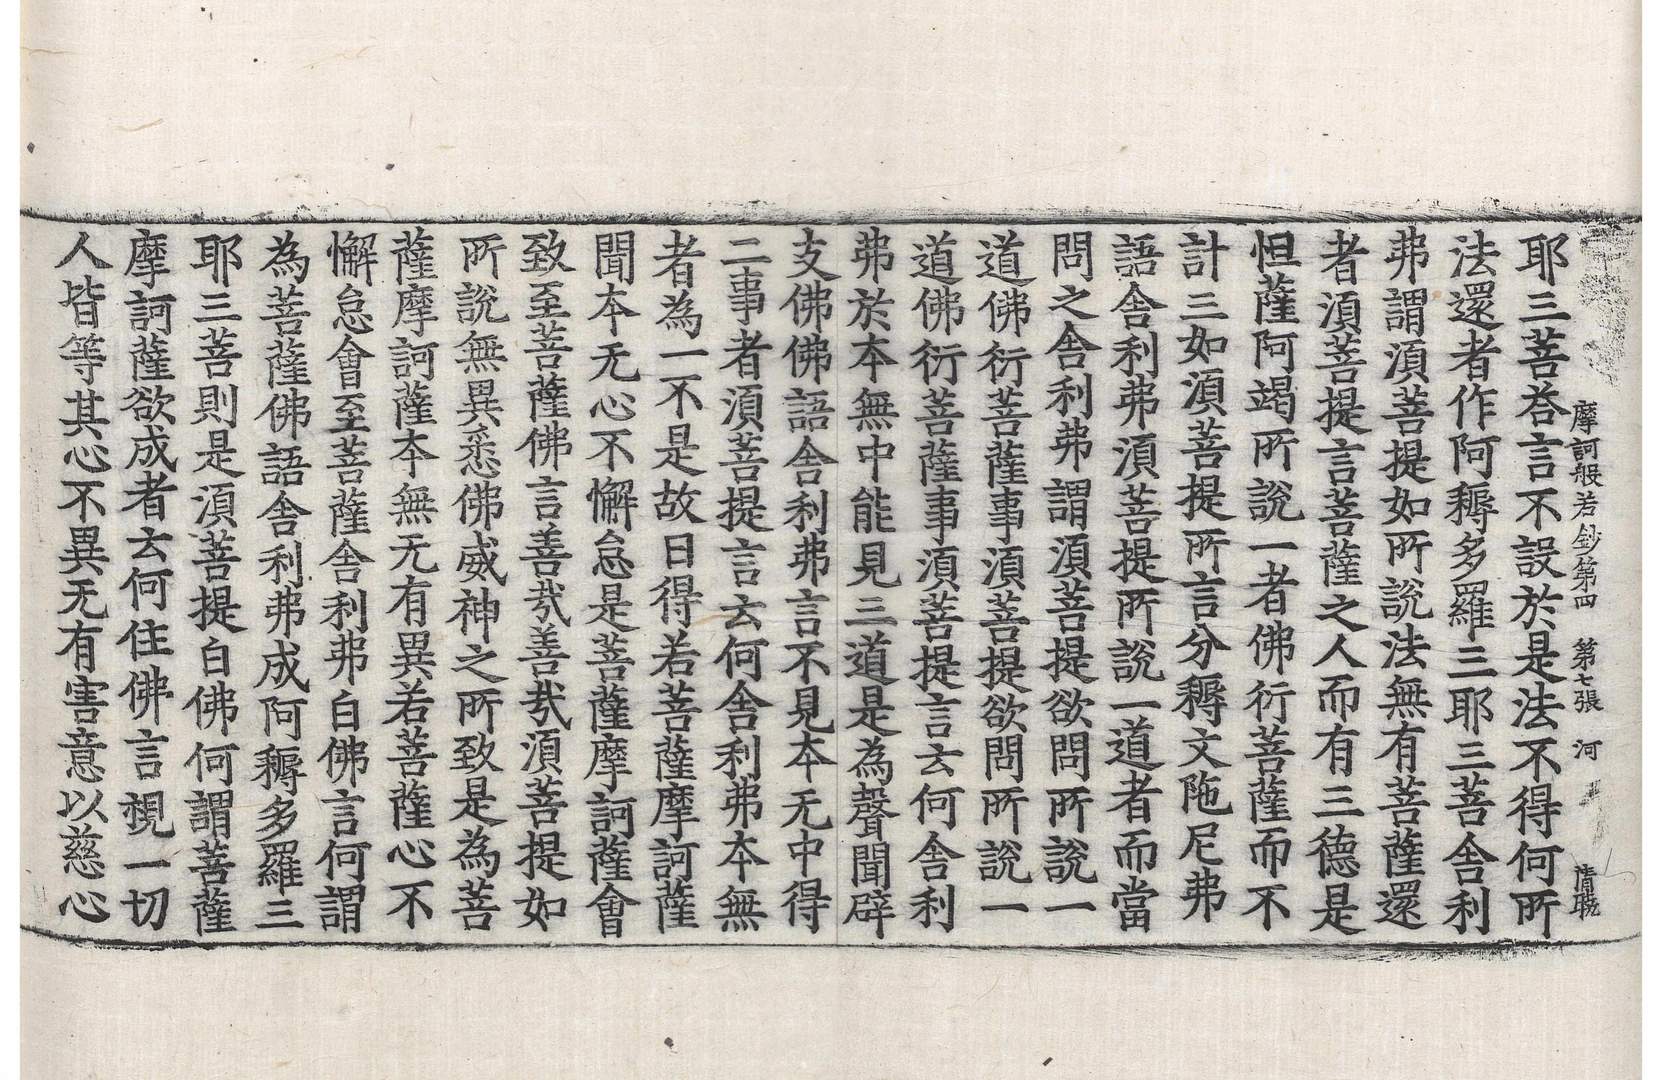 摩訶般若鈔第四　第七張　河
耶三菩荅言不設於是法不得何所
法還者作阿耨多羅三耶三菩舍利
弗謂湏菩提如所說法無有菩薩還
者湏菩提言菩薩之人而有三德是
怛薩阿竭所說一者佛衍菩薩而不
計三如湏菩提所言分耨文陁尼弗
語舍利弗湏菩提所說一道者而當
問之舍利弗謂湏菩提欲問所說一
道佛衍菩薩事湏菩提欲問所說一
道佛衍菩薩事湏菩提言云何舍利
弗於本無中能見三道是為聲聞辟
支佛佛語舍利弗言不見本无中得
二事者湏菩提言云何舍利弗本無
者為一不是故日得若菩薩摩訶薩
聞本无心不懈怠是菩薩摩訶薩會
致至菩薩佛言善㢤善㢤湏菩提如
所說無異悉佛威神之所致是為菩
薩摩訶薩本無无有異若菩薩心不
懈怠會至菩薩舍利弗白佛言何謂
為菩薩佛語舍利弗成阿耨多羅三
耶三菩則是湏菩提白佛何謂菩薩
摩訶薩欲成者云何住佛言視一切
人皆等其心不異无有害意以慈心